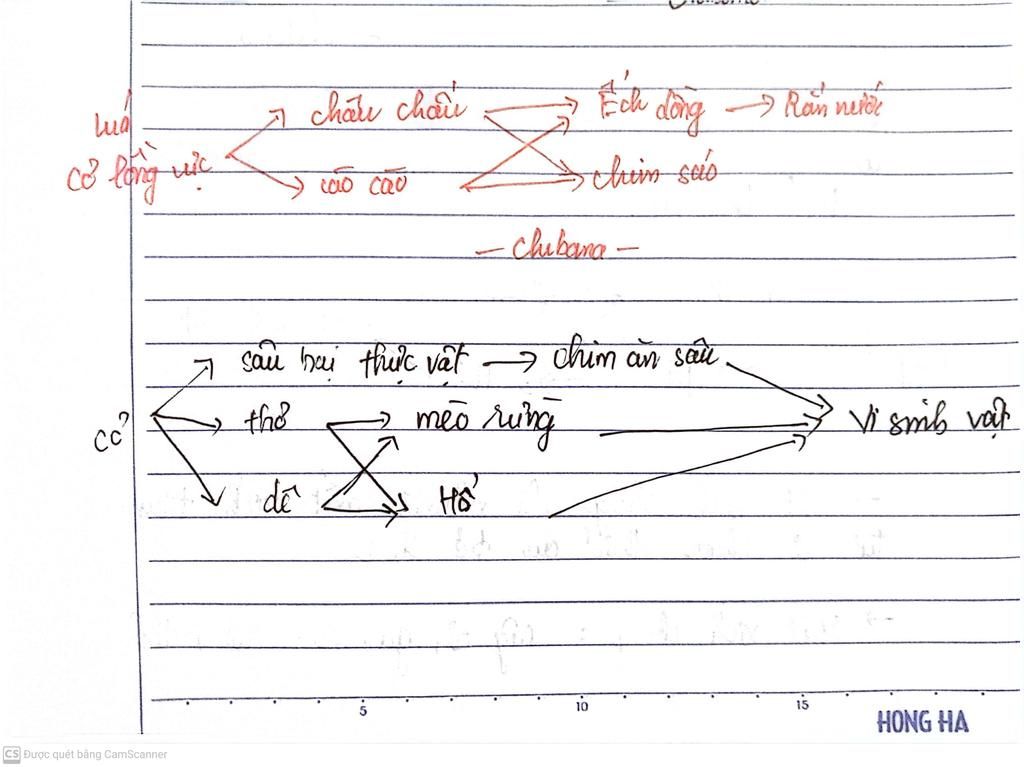 châu chấu → Ếch đồng → Rắn nước
lúa
cỏ lồng vực
cào cào → chim sáo
— Chibana —
sâu hại thực vật → chim ăn sâu
cỏ
thỏ → mèo rừng
vi sinh vật
dê → Hổ
5 10 15
HONG HA
CS Được quét bằng CamScanner